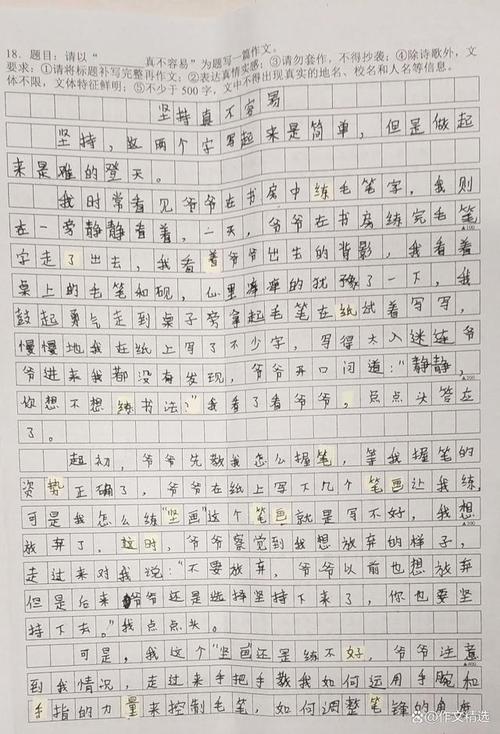 18. 题目：请以“______真不容易”为题写一篇作文。
要求：①请将标题补写完整再作文；②表达真情实感；③请勿套作，不得抄袭；④除诗歌外，文
体不限，文体特征鲜明；⑤不少于 500 字，文中不得出现真实的地名、校名和人名等信息。
坚持真不容易
坚持，这两个字写起来是简单，但是做起
来是难的登天。
我时常看见爷爷在书房中练毛笔字，我则
在一旁静静看着，一天，爷爷在书房练完毛笔
▲100
字走了出去，我看着爷爷出去的背影，我看着
桌上的毛笔和砚，心里痒痒的犹豫了一下，我
鼓起勇气走到桌子旁拿起毛笔在纸试着写写，
慢慢地我在纸上写了不少字，写得太入迷连爷
爷进来我都没有发现，爷爷开口问道：“静静，
▲200
你想不想练书法？”我看了看爷爷，点点头答应
了。
起初，爷爷先教我怎么握笔，等我握笔的
资势正确了，爷爷在纸上写下几个笔画让我练
可是我怎么练“竖画”这个笔画就是写不好，我想
▲300
放弃了，这时，爷爷察觉到我想放弃的样子，
走过来对我说：“不要放弃，爷爷以前也想放弃
但是后来爷爷还是选择坚持下来了，你也要坚
持下去。”我点点头。
可是，我这个“竖画还是练不好，爷爷注意
到我情况，走过来手把手教我如何运用手腕和
手指的力量来控制毛笔，如何调整笔锋的角度
@作文精选